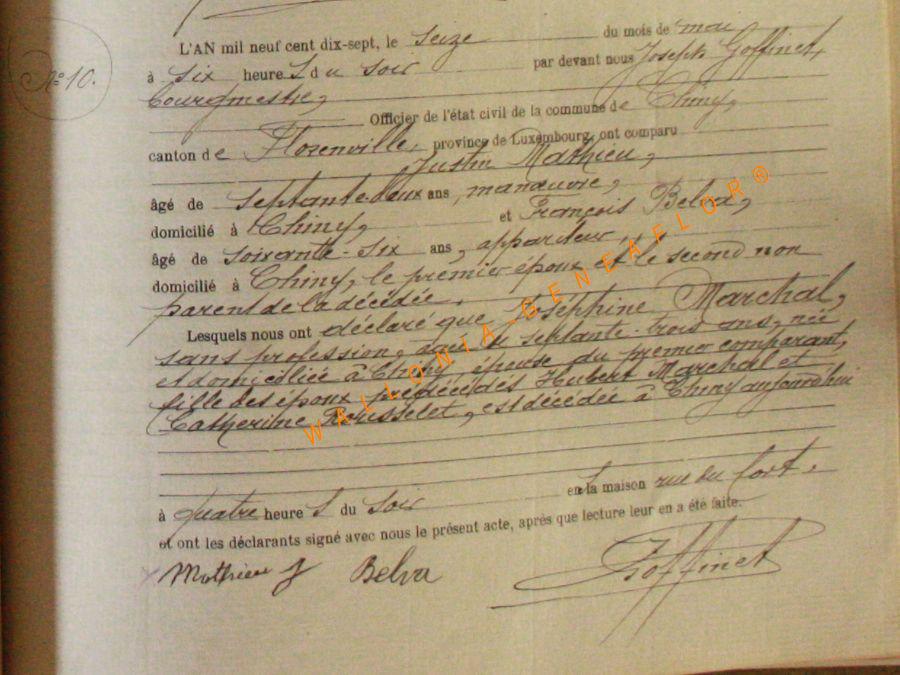 N° 10.
L'AN mil neuf cent dix-sept, le seize du mois de mai
à six heures du soir par devant nous Joseph Goffinet,
bourgmestre,
Officier de l'état civil de la commune de Chiny,
canton de Florenville, province de Luxembourg, ont comparu
Justin Mathieu,
âgé de septante-deux ans, manœuvre,
domicilié à Chiny, et François Belva,
âgé de soixante-six ans, appariteur,
domicilié à Chiny, le premier époux et le second non
parent de la décédée.
Lesquels nous ont déclaré que Joséphine Marchal,
sans profession, âgée de septante-trois ans, née
et domiciliée à Chiny, épouse du premier comparant,
fille des époux prédécédés Hubert Marchal et
Catherine Rousselet, est décédée à Chiny aujourd'hui
à quatre heures du soir en sa maison rue du fort.
et ont les déclarants signé avec nous le présent acte, après que lecture leur en a été faite.
Mathieu J Belva JGoffinet
WALLONIA-GENEAFLOR®